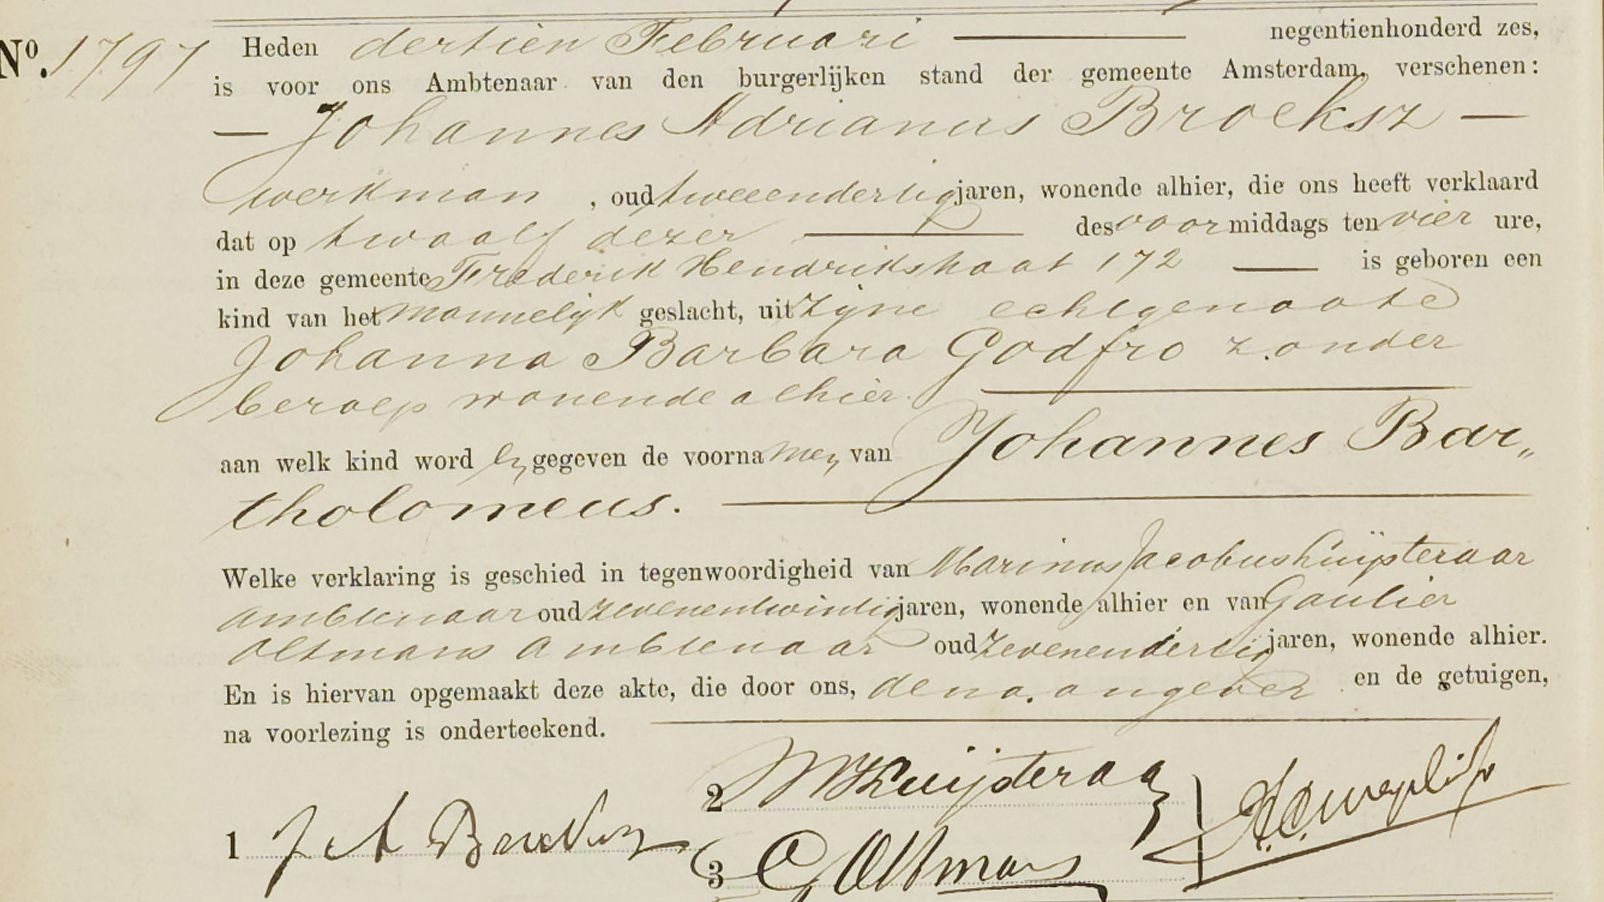 Nº. 1797 Heden dertien Februari negentienhonderd zes,
is voor ons Ambtenaar van den burgerlijken stand der gemeente Amsterdam, verschenen:
Johannes Adrianus Broeksz
werkman, oud tweeendertig jaren, wonende alhier, die ons heeft verklaard
dat op twaalf dezer des voormiddags ten vier ure,
in deze gemeente Frederik Hendrikstraat 172 is geboren een
kind van het mannelijk geslacht, uit zijne echtgenoote
Johanna Barbara Godfro zonder
beroep wonende alhier.
aan welk kind worden gegeven de voornamen van Johannes Bar„
tholomeus.
Welke verklaring is geschied in tegenwoordigheid van Marinus Jacobus Kuijsteraar
ambtenaar oud zevenentwintig jaren, wonende alhier en van Gaulier
Oltmans ambtenaar oud zevenendertig jaren, wonende alhier.
En is hiervan opgemaakt deze akte, die door ons, den a. angever en de getuigen,
na voorlezing is onderteekend.
2 MJKuijsteraar
1 J A Broeksz
3 G Oltmans